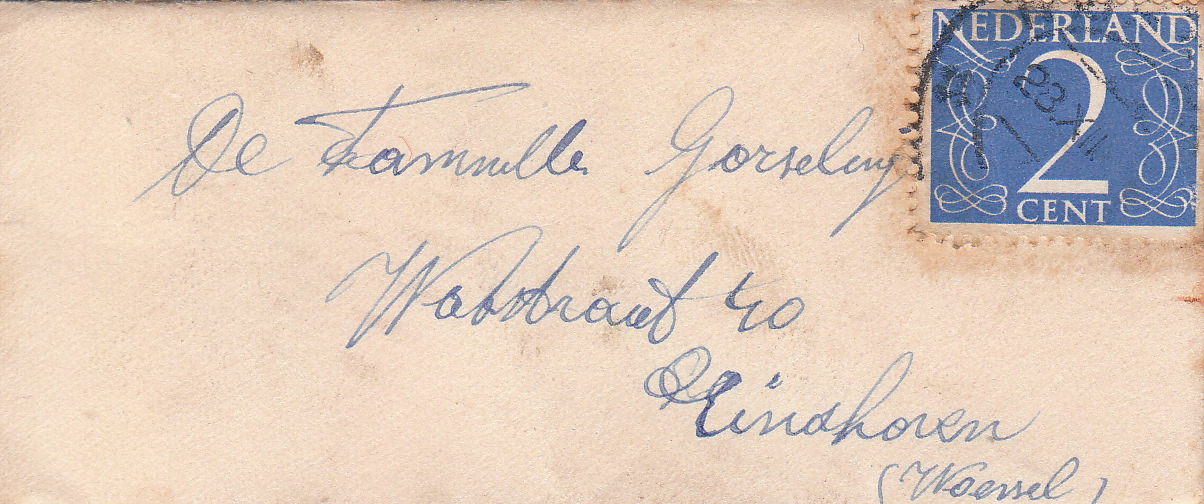 De Familie Gorseling
NEDERLAND
2
CENT
23.XII
Watstraat 40
Eindhoven
(Woensel)